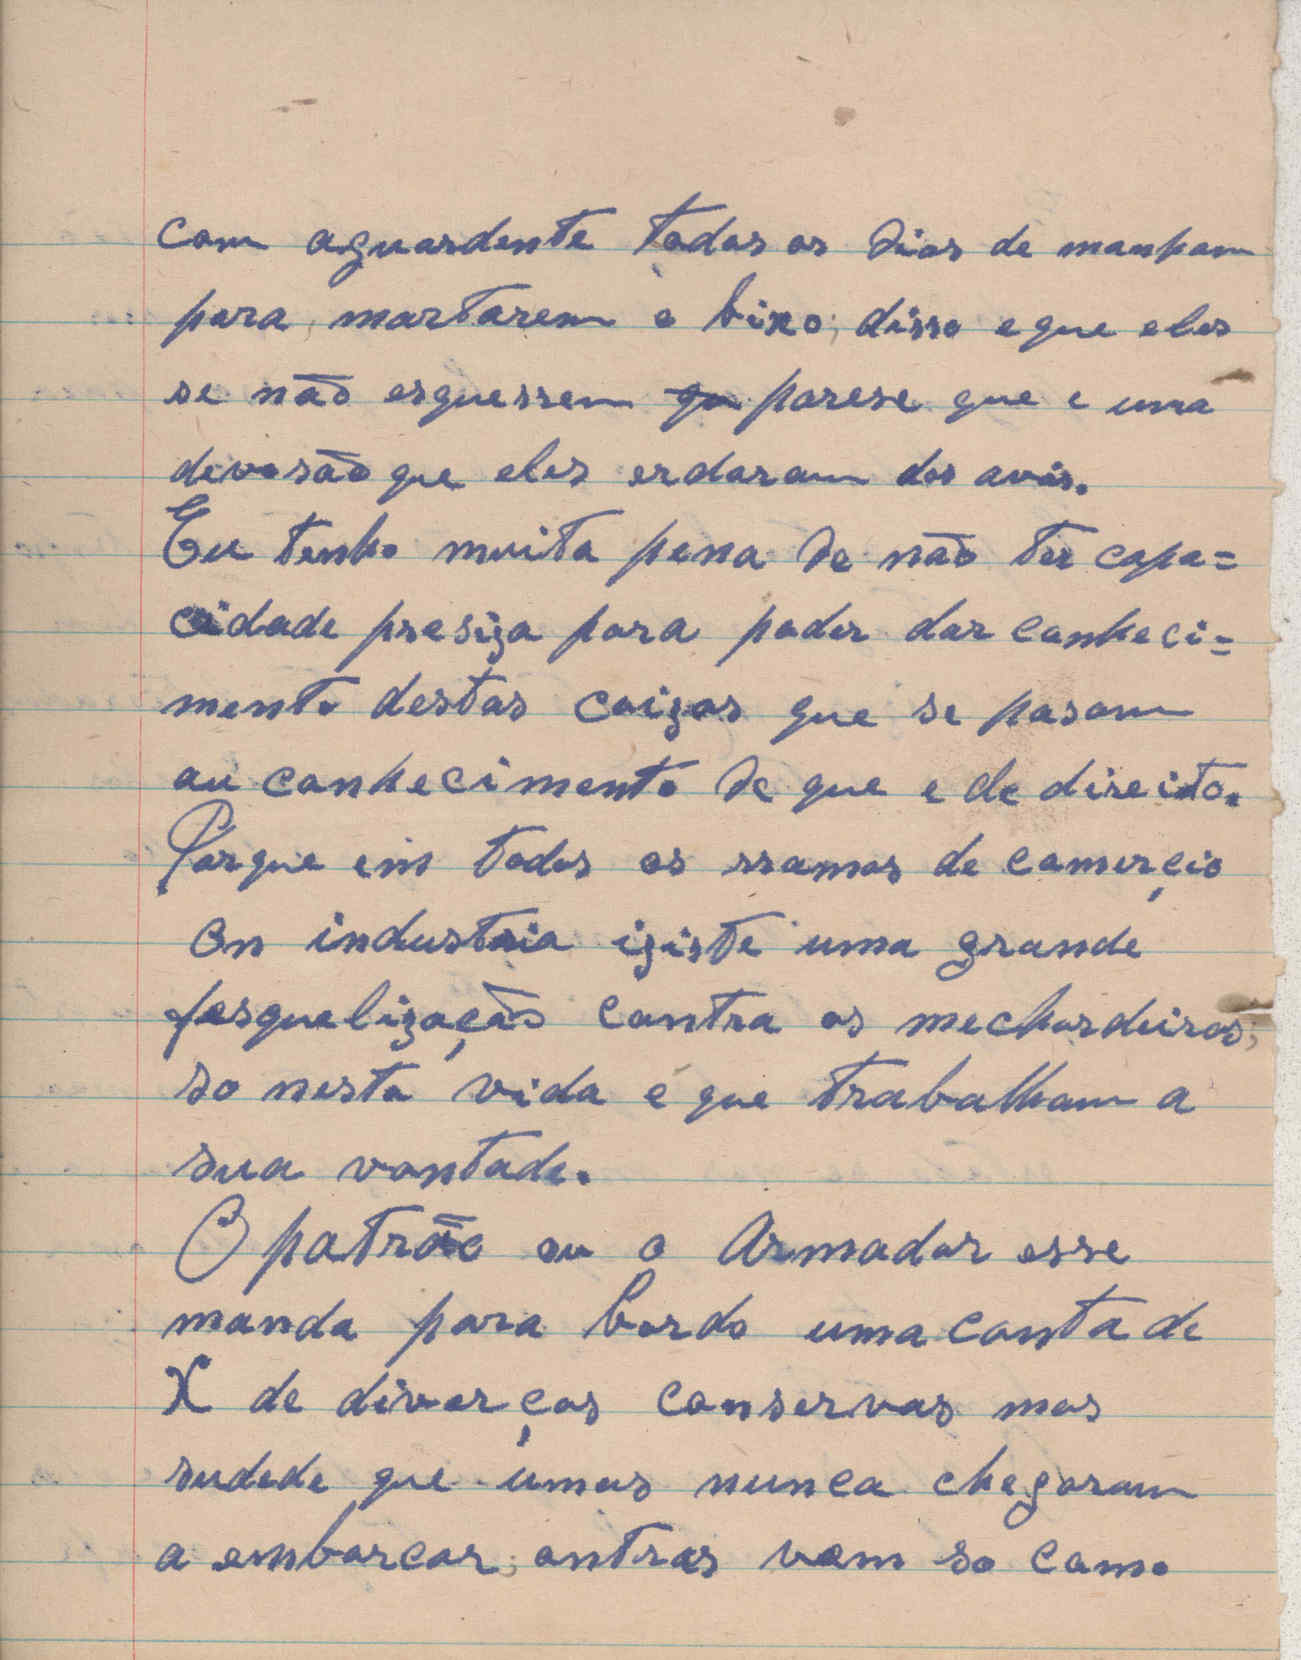 com aguardente todos os dias de manham
para martarem o bixo; disso e que eles
se não esquessem qu parese que e uma
devosão que eles erdaram dos avós.
Eu tenho muita pena de não ter capa=
cidade presiza para poder dar conheci=
mento destas coizas que se pasam
au conhecimento de que e de direito.
Porque em todos os rramos de comerçio
ou industria iziste uma grande
fesquelização contra os mechordeiros;
so nesta vida é que trabalham a
sua vontade.
O patrão ou o Armador esse
manda para bordo uma conta de
X de diverças conservas mas
sudede que umas nunca chegaram
a embarcar; outras vem so como